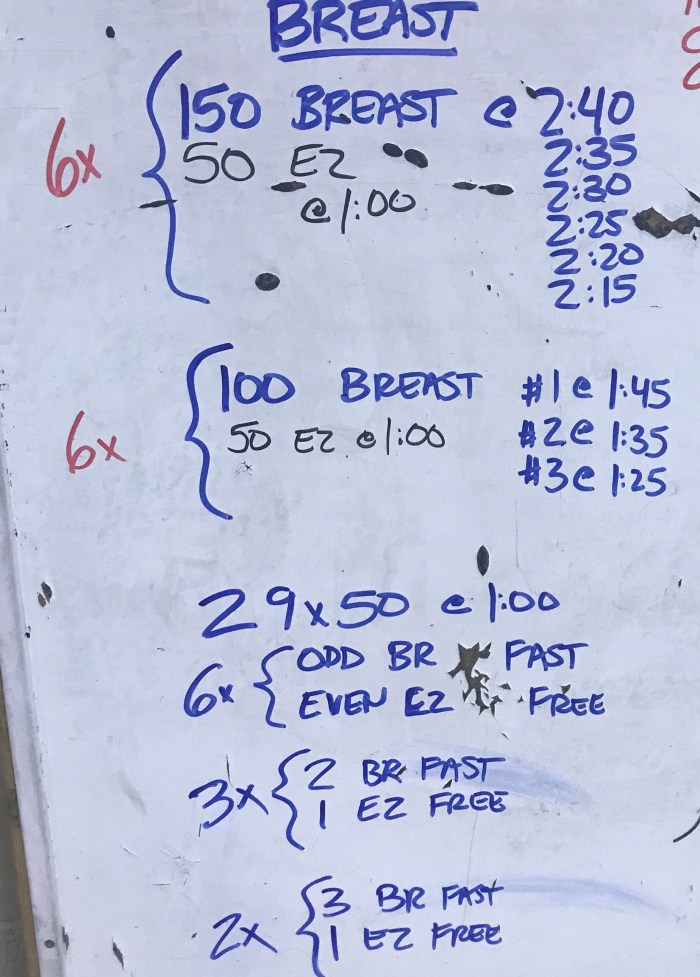 BREAST
6x
150 BREAST @ 2:40
50 EZ 2:35
@ 1:00 2:30
2:25
2:20
2:15
6x
100 BREAST #1 @ 1:45
50 EZ @ 1:00 #2 @ 1:35
#3 @ 1:25
29x50 @ 1:00
6x
ODD BR FAST
EVEN EZ FREE
3x
2 BR FAST
1 EZ FREE
2x
3 BR FAST
1 EZ FREE